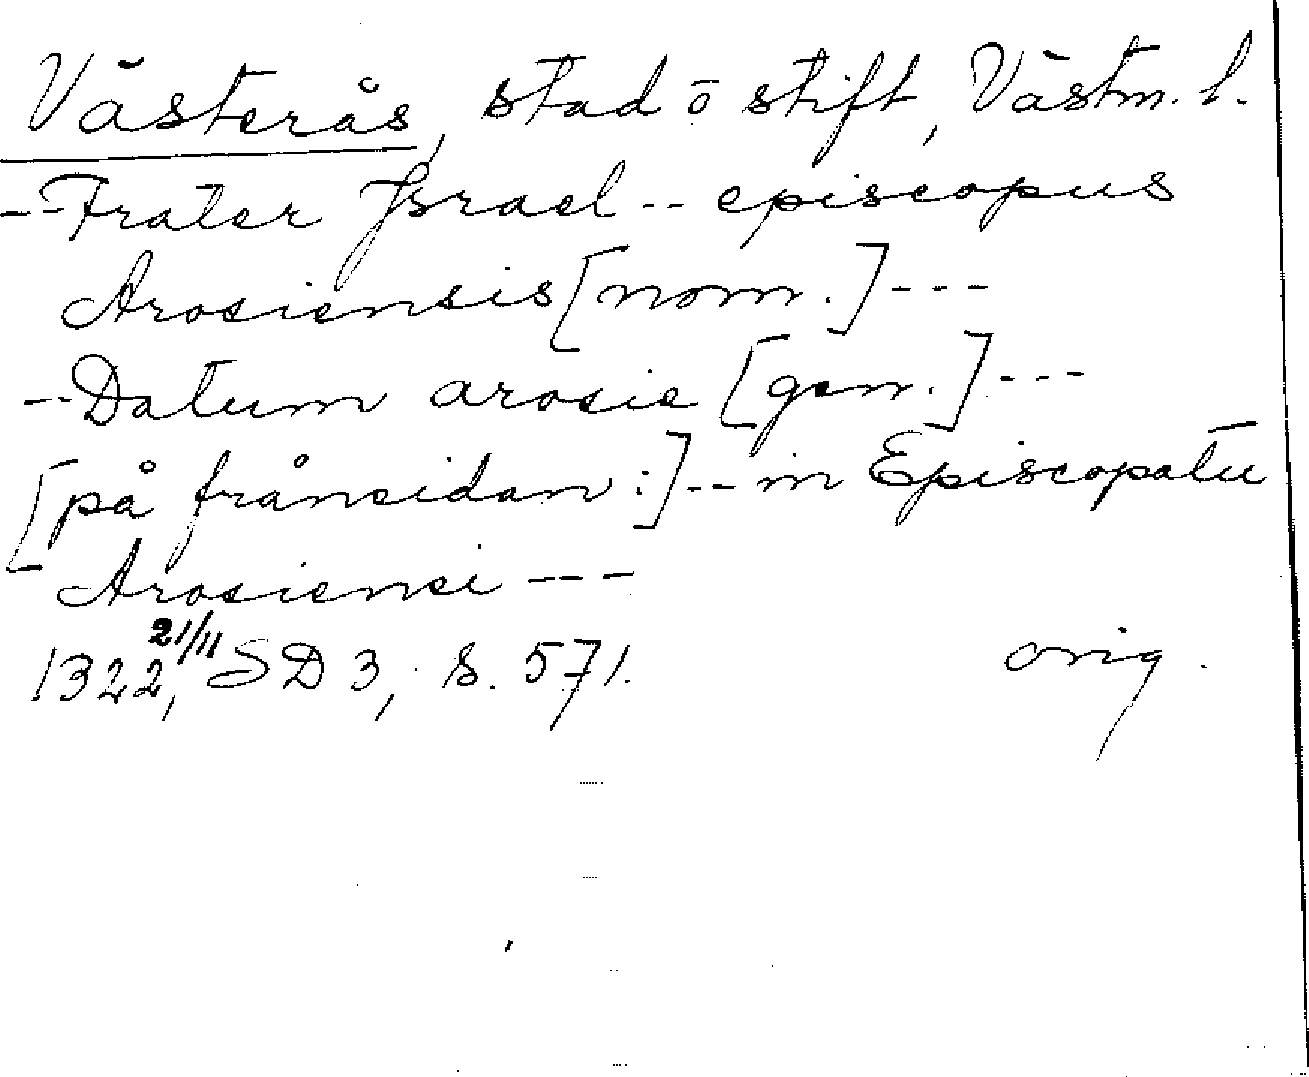 Västerås, stad ō stift, Västm. l.
-- Frater Israel -- episcopus
Arosiensis [nom.] ---
-- Datum arosie [gen.] ---
[på frånsidan:] -- in Episcopatu
Arosiensi ---
1322 21/11, SD 3, s. 571. orig.